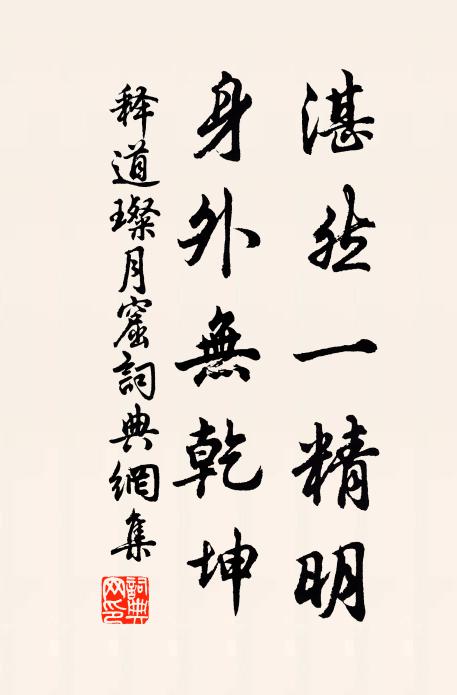 湛然一精明
身外無乾坤
释道璨月窟詞典網集
詞典网印